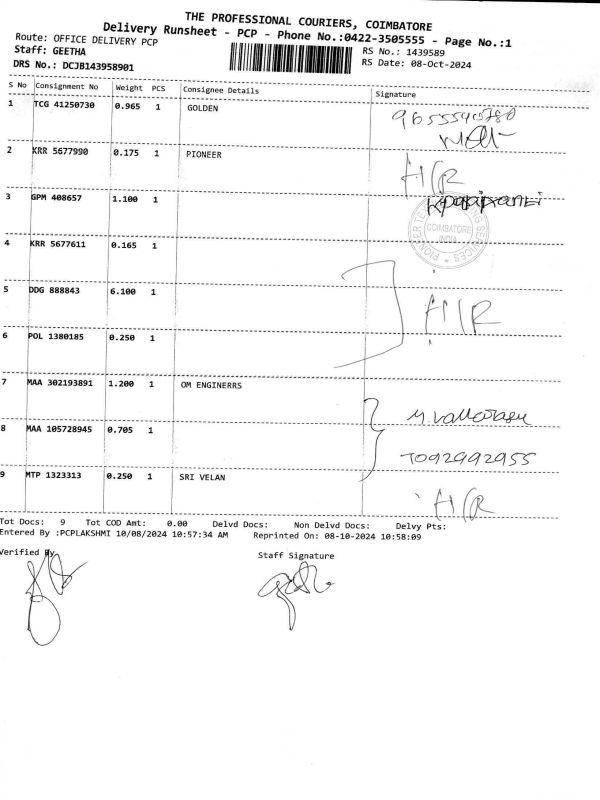 THE PROFESSIONAL COURIERS, COIMBATORE
Delivery Runsheet - PCP - Phone No.:0422-3505555 - Page No.:1
Route: OFFICE DELIVERY PCP
RS No.: 1439589
Staff: GEETHA
RS Date: 08-Oct-2024
DRS No.: DCJB143958901
S No Consignment No Weight PCS Consignee Details Signature
1 TCG 41250730 0.965 1 GOLDEN
2 KRR 5677990 0.175 1 PIONEER
3 GPM 408657 1.100 1
COIMBATORE
INDIA
4 KRR 5677611 0.165 1
5 DDG 888843 6.100 1
6 POL 1380185 0.250 1
7 MAA 302193891 1.200 1 OM ENGINERRS
8 MAA 105728945 0.705 1
7092992955
9 MTP 1323313 0.250 1 SRI VELAN
Tot Docs: 9 Tot COD Amt: 0.00 Delvd Docs: Non Delvd Docs: Delvy Pts:
Entered By :PCPLAKSHMI 10/08/2024 10:57:34 AM Reprinted On: 08-10-2024 10:58:09
Verified By
Staff Signature